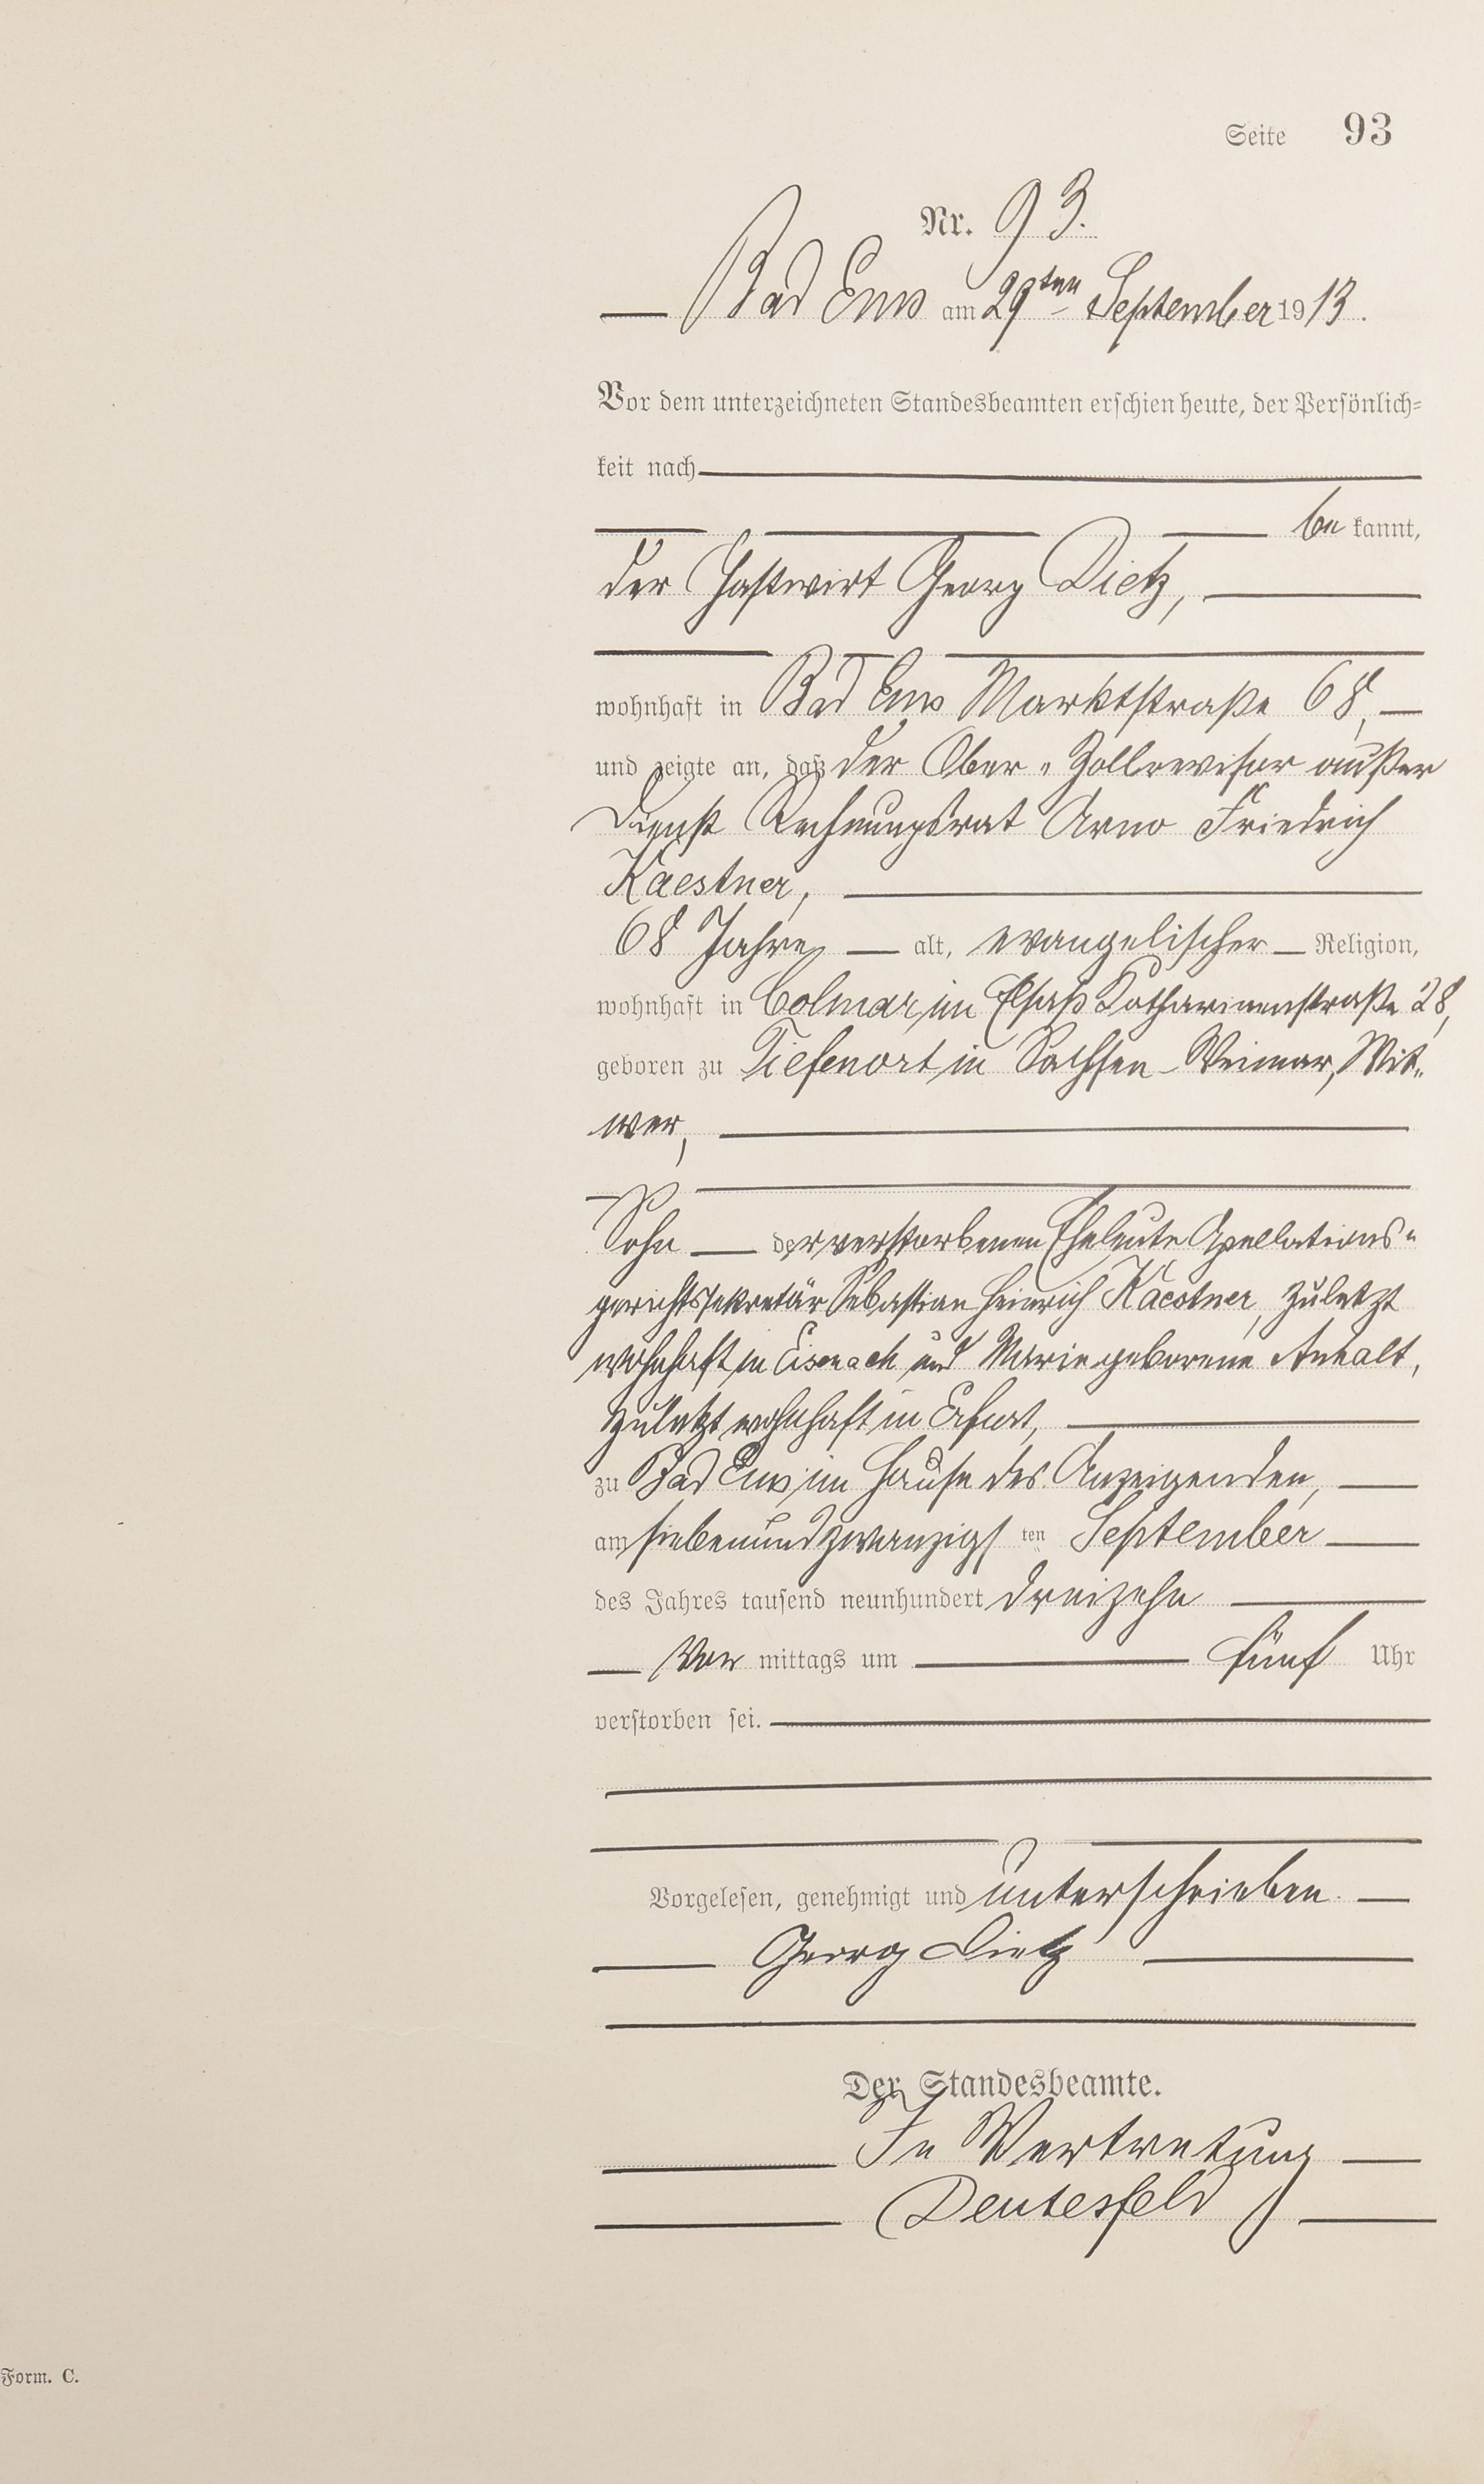 Seite 93
Nr. 93.
Bad Ems am 29ten September 1913.
Vor dem unterzeichneten Standesbeamten erschien heute, der Persönlich-
keit nach
be kannt,
der Gastwirt Georg Dietz,
wohnhaft in Bad Ems Marktstraße 68,
und zeigte an, daß der Ober-Zollrevisor außer
Dienst Rechnungsrat Arno Friedrich
Kaestner,
68 Jahre alt, evangelischer Religion,
wohnhaft in Colmar im Elsaß Katharinenstraße 28,
geboren zu Tiefenort in Sachsen-Weimar, Wit-
wer,
Sohn der verstorbenen Eheleute Apellations-
gerichtssekretär Sebastian Heinrich Kaestner, zuletzt
wohnhaft in Eisenach und Marie geborene Anhalt,
zuletzt wohnhaft in Erfurt,
zu Bad Ems im Hause des Anzeigenden,
am siebenundzwanzigs ten September
des Jahres tausend neunhundert dreizehn
Vor mittags um fünf Uhr
verstorben sei.
Vorgelesen, genehmigt und unterschrieben.
Georg Dietz
Der Standesbeamte.
In Vertretung
Deutesfeld
Form. C.